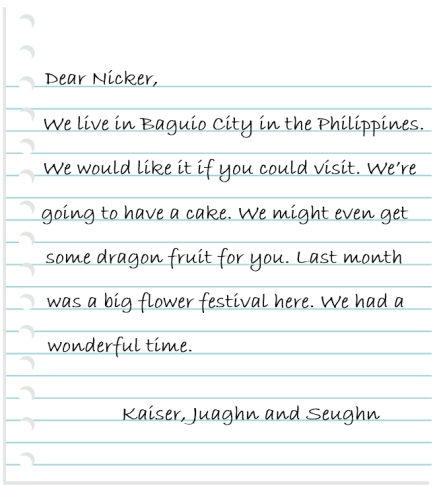 Dear Nicker,
We live in Baguio City in the Philippines.
We would like it if you could visit. We're
going to have a cake. We might even get
some dragon fruit for you. Last month
was a big flower festival here. We had a
wonderful time.
Kaiser, Juaghn and Seughn